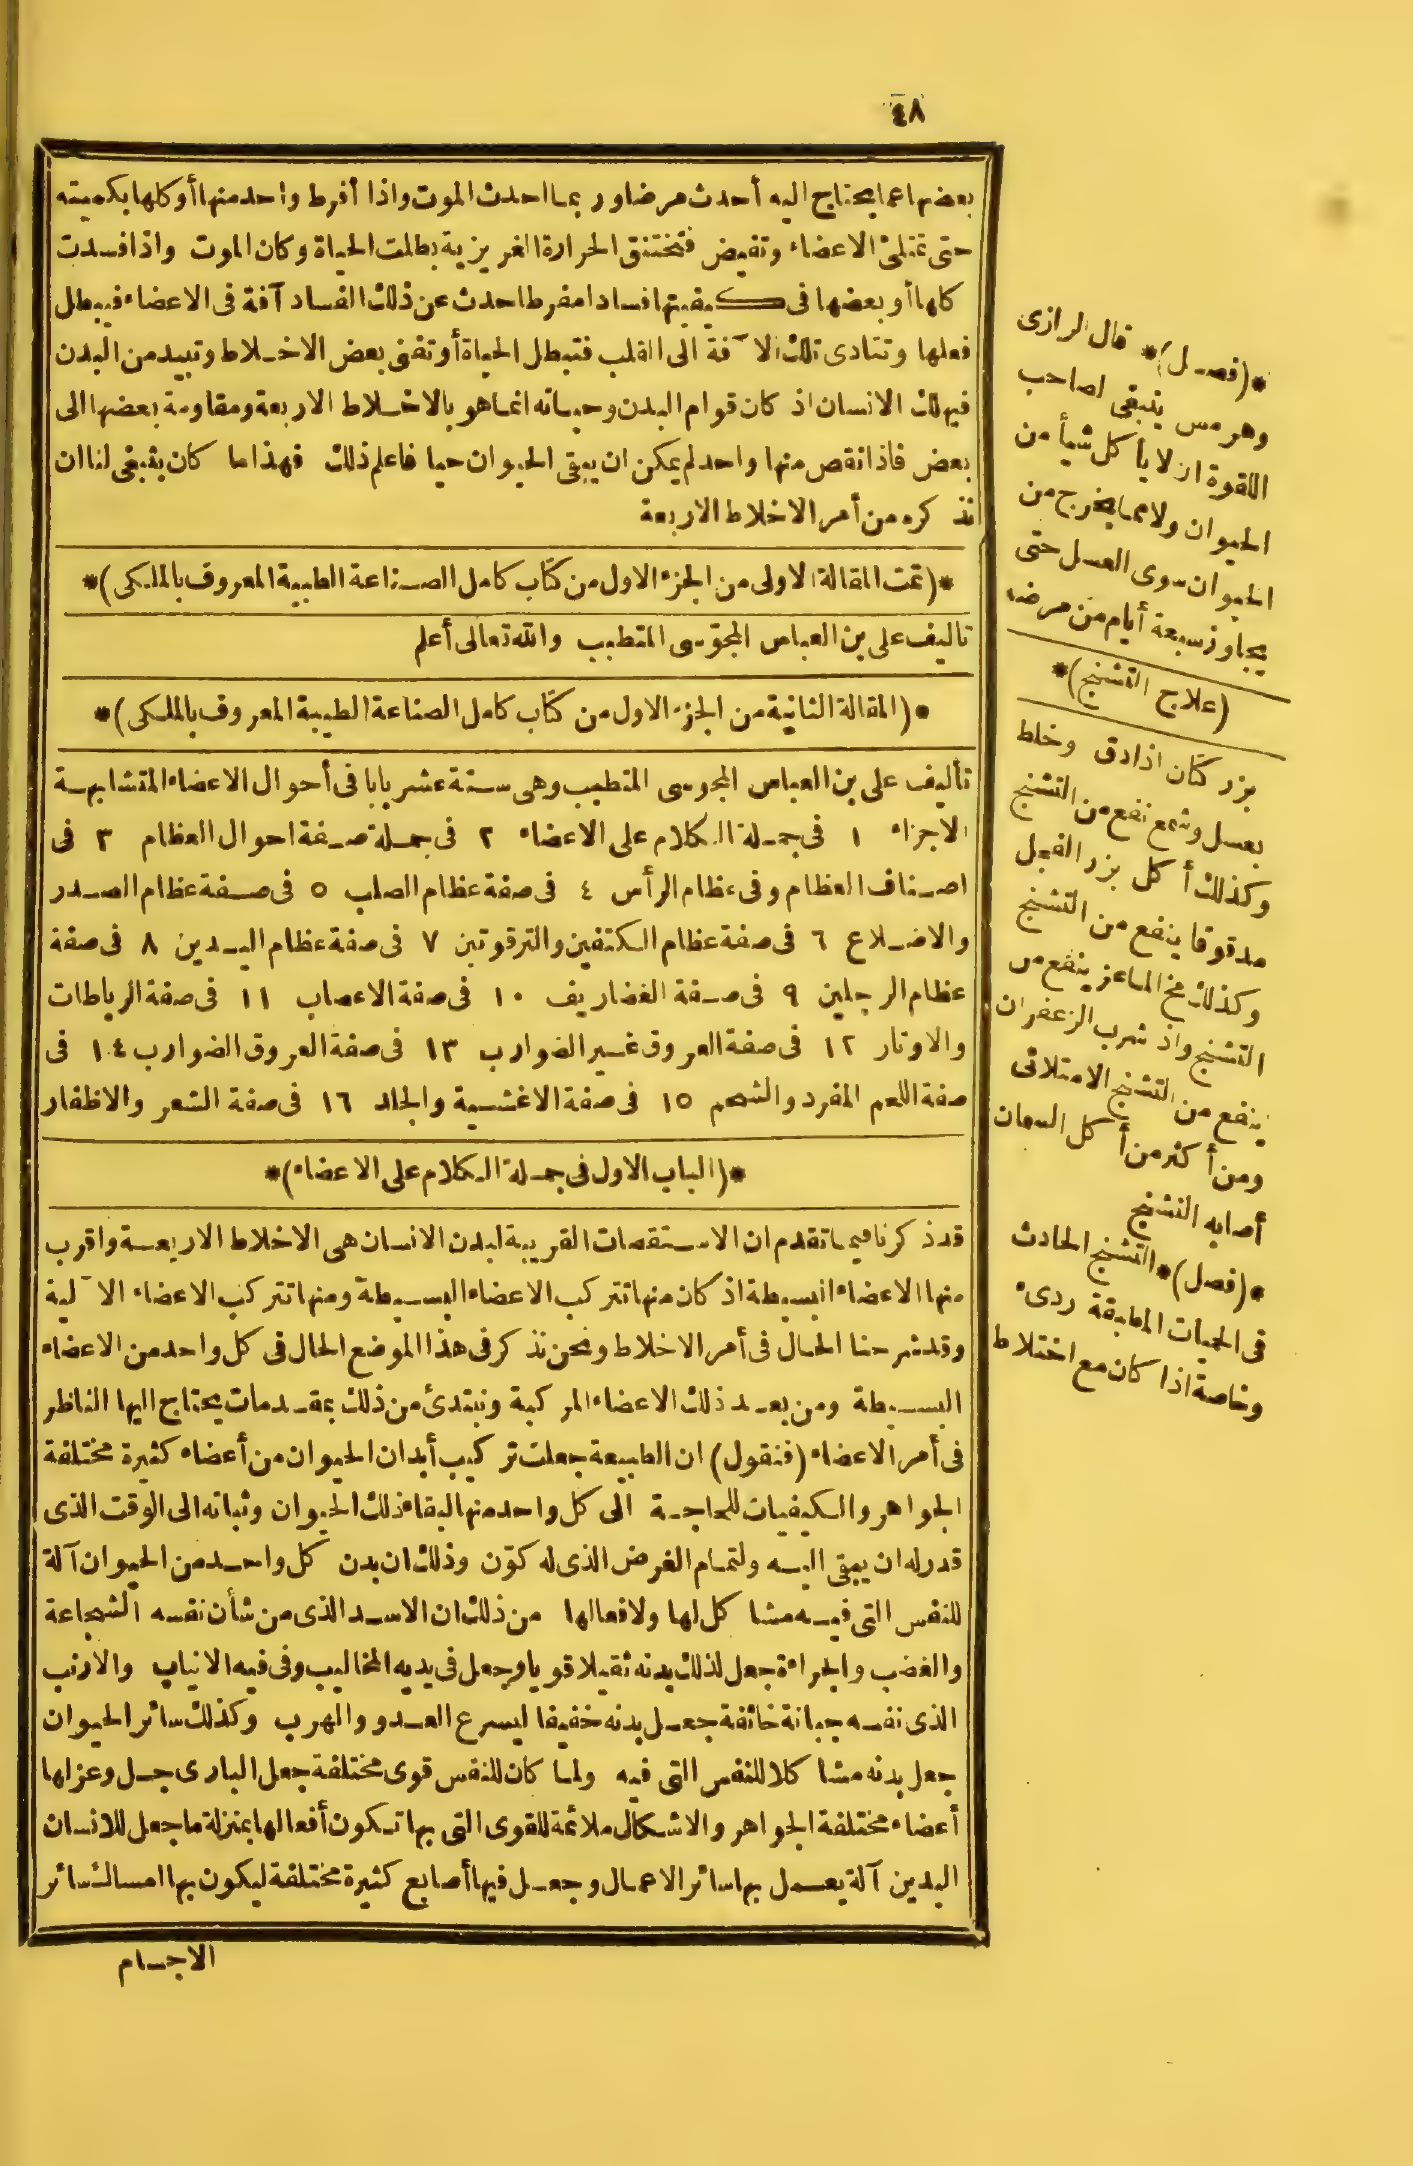 ٤٨
بعضها عما يحتاج اليه أحدث مرضا وربما احدث الموت واذا أفرط واحد منها أو كلها بكميته
حتى تمتلئ الاعضاء وتفيض فتختنق الحرارة الغريزية بطلت الحياة وكان الموت واذا فسدت
كلها أو بعضها فى كيفيتها فسادا مفرطا حدث عن ذلك الفساد آفة فى الاعضاء فيبطل
فعلها وتتادى تلك الآفة الى القلب فتبطل الحياة أو تفنى بعض الاخلاط وتبيد من البدن
فيهلك الانسان اذ كان قوام البدن وحياته انما هو بالاخلاط الاربعة ومقاومة بعضها الى
بعض فاذا نقص منها واحد لم يمكن ان يبقى الحيوان حيا فاعلم ذلك فهذا ما كان ينبغى لنا ان
نذكره من أمر الاخلاط الاربعة
*(تمت المقالة الاولى من الجزء الاول من كتاب كامل الصناعة الطبية المعروف بالملكى)*
تاليف على بن العباس المجوسى المتطبب والله تعالى أعلم
*(المقالة الثانية من الجزء الاول من كتاب كامل الصناعة الطبية المعروف بالملكى)*
تأليف على بن العباس المجوسى المتطبب وهى ستة عشر بابا فى أحوال الاعضاء المتشابهة
الاجزاء ١ فى جملة الكلام على الاعضاء ٢ فى جملة صفة احوال العظام ٣ فى
اصناف العظام وفى عظام الرأس ٤ فى صفة عظام الصلب ٥ فى صفة عظام الصدر
والاضلاع ٦ فى صفة عظام الكتفين والترقوتين ٧ فى صفة عظام اليدين ٨ فى صفة
عظام الرجلين ٩ فى صفة الغضاريف ١٠ فى صفة الاعصاب ١١ فى صفة الرباطات
والاوتار ١٢ فى صفة العروق غير الضوارب ١٣ فى صفة العروق الضوارب ١٤ فى
صفة اللحم المفرد والشحم ١٥ فى صفة الاغشية والجلد ١٦ فى صفة الشعر والاظفار
*(الباب الاول فى جملة الكلام على الاعضاء)*
قد ذكرنا فيما تقدم ان الاستقصات القريبة لبدن الانسان هى الاخلاط الاربعة واقرب
منها الاعضاء البسيطة اذ كان منها تتركب الاعضاء البسيطة ومنها تتركب الاعضاء الآلية
وقد شرحنا الحال فى أمر الاخلاط ونحن نذكر فى هذا الموضع الحال فى كل واحد من الاعضاء
البسيطة ومن بعد ذلك الاعضاء المركبة ونبتدئ من ذلك بمقدمات يحتاج اليها الناظر
فى أمر الاعضاء (فنقول) ان الطبيعة جعلت تركيب أبدان الحيوان من أعضاء كثيرة مختلفة
الجواهر والكيفيات للحاجة الى كل واحد منها لبقاء ذلك الحيوان وثباته الى الوقت الذى
قدر له ان يبقى اليه ولتمام الغرض الذى له كوّن وذلك ان بدن كل واحد من الحيوان آلة
للنفس التى فيه مشاكل لها ولافعالها من ذلك ان الاسد الذى من شأن نفسه الشجاعة
والغضب والجراءة جعل لذلك بدنه ثقيلا قويا وجعل فى يديه المخاليب وفى فيه الانياب والارنب
الذى نفسه جبانة خائفة جعل بدنه خفيفا ليسرع العدو والهرب وكذلك سائر الحيوان
جعل بدنه مشاكلا للنفس التى فيه ولما كان للنفس قوى مختلفة جعل البارى جل وعز لها
أعضاء مختلفة الجواهر والاشكال ملائمة للقوى التى بها تكون أفعالها بمنزلة ما جعل للانسان
اليدين آلة يعمل بها سائر الاعمال وجعل فيها أصابع كثيرة مختلفة ليكون بها امساك سائر
الاجسام
*(فصل)* قال الرازى
وهرمس ينبغى لصاحب
اللقوة ان لا يأكل شيأ من
الحيوان ولا مما يخرج من
الحيوان سوى العسل حتى
يجاوز سبعة أيام من مرضه
(علاج التشنج)*
بزر كتان اذا دق وخلط
بعسل وشمع نفع من التشنج
وكذلك أكل بزر الفجل
مدقوقا ينفع من التشنج
وكذلك مخ الماعز ينفع من
التشنج واذ شرب الزعفران
ينفع من التشنج الامتلائى
ومن أكثر من أكل السمان
أصابه التشنج
*(فصل)* التشنج الحادث
فى الحميات المطبقة ردىء
وخاصة اذا كان مع اختلاط